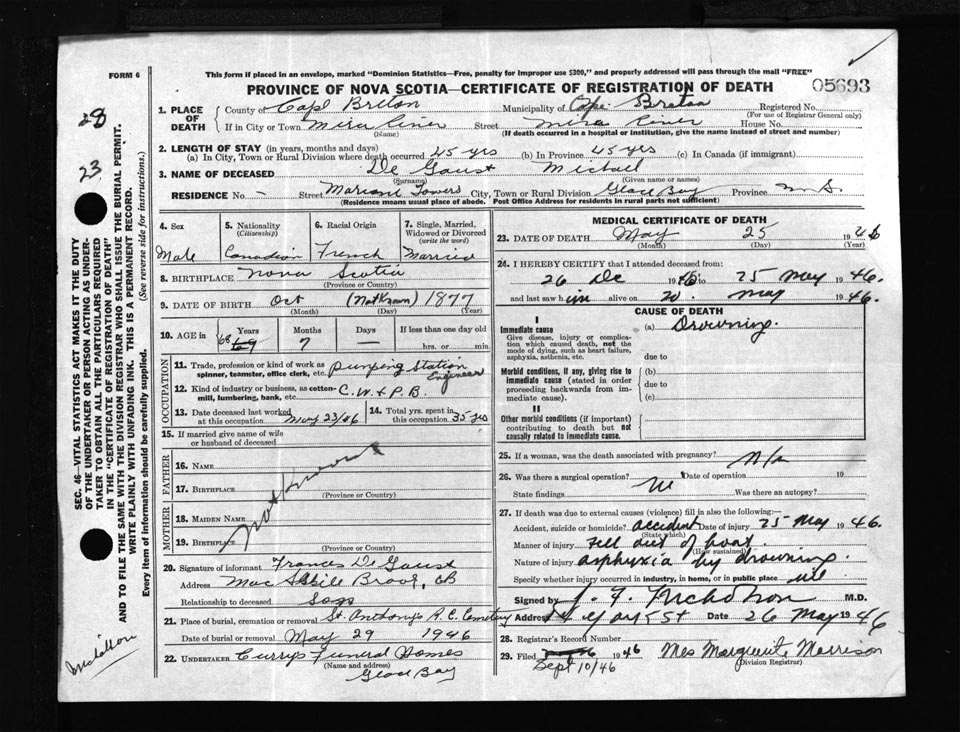 FORM 6
This form if placed in an envelope, marked "Dominion Statistics—Free, penalty for improper use $300," and properly addressed will pass through the mail "FREE"
PROVINCE OF NOVA SCOTIA—CERTIFICATE OF REGISTRATION OF DEATH
05693
28
23
SEC. 46—VITAL STATISTICS ACT MAKES IT THE DUTY OF THE UNDERTAKER OR PERSON ACTING AS UNDERTAKER TO OBTAIN ALL THE PARTICULARS REQUIRED IN THE "CERTIFICATE OF REGISTRATION OF DEATH" AND TO FILE THE SAME WITH THE DIVISION REGISTRAR WHO SHALL ISSUE THE BURIAL PERMIT.
WRITE PLAINLY WITH UNFADING INK. THIS IS A PERMANENT RECORD.
Every item of information should be carefully supplied. (See reverse side for instructions.)
1. PLACE OF DEATH County of Cape Breton Municipality of Cape Breton Registered No.
(For use of Registrar General only)
If in City or Town Mira River Street Mira River House No.
(Name) (If death occurred in a hospital or institution, give the name instead of street and number)
2. LENGTH OF STAY (in years, months and days)
(a) In City, Town or Rural Division where death occurred 45 yrs (b) In Province 45 yrs (c) In Canada (if immigrant)
3. NAME OF DECEASED De Goust Michael
(Surname) (Given name or names)
RESIDENCE No. - Street Marconi Towers City, Town or Rural Division Glace Bay Province N.S.
(Residence means usual place of abode. Post Office Address for residents in rural parts not sufficient)
4. Sex 5. Nationality (Citizenship) 6. Racial Origin 7. Single, Married, Widowed or Divorced (write the word)
Male Canadian French Married
8. BIRTHPLACE Nova Scotia
(Province or Country)
9. DATE OF BIRTH Oct (Not Known) 1877
(Month) (Day) (Year)
10. AGE in Years Months Days If less than one day old
68 69 7 — hrs. or min.
OCCUPATION
11. Trade, profession or kind of work as spinner, teamster, office clerk, etc. Pumping Station Engineer
12. Kind of industry or business, as cotton-mill, lumbering, bank, etc. C.W. & P.B.
13. Date deceased last worked at this occupation May 23/46 14. Total yrs. spent in this occupation 35 yrs
15. If married give name of wife or husband of deceased
FATHER
16. NAME
17. BIRTHPLACE
(Province or Country)
Not Known
MOTHER
18. MAIDEN NAME
19. BIRTHPLACE
(Province or Country)
20. Signature of informant Frances De Goust
Address Brook, CB
Relationship to deceased Son
21. Place of burial, cremation or removal St. Anthony's R.C. Cemetery
Date of burial or removal May 29 1946
22. UNDERTAKER Curry's Funeral Homes
(Name and address)
Glace Bay
MEDICAL CERTIFICATE OF DEATH
23. DATE OF DEATH May 25 1946
(Month) (Day) (Year)
24. I HEREBY CERTIFY that I attended deceased from:
26 De 19 to 25 May 1946.
and last saw him alive on 20. May 1946.
CAUSE OF DEATH
I
Immediate cause (a) Drowning.
Give disease, injury or complication which caused death, not the mode of dying, such as heart failure, asphyxia, asthenia, etc.
due to
Morbid conditions, if any, giving rise to immediate cause (stated in order proceeding backwards from immediate cause).
(b)
due to
(c)
II
Other morbid conditions (if important) contributing to death but not causally related to immediate cause.
25. If a woman, was the death associated with pregnancy? N/a
26. Was there a surgical operation? Date of operation 19
State findings Was there an autopsy?
27. If death was due to external causes (violence) fill in also the following:—
Accident, suicide or homicide? accident Date of injury 25 May 1946.
(State which)
Manner of injury Fell out of boat.
(How sustained)
Nature of injury asphyxia by drowning.
Specify whether injury occurred in industry, in home, or in public place
Signed by J. F. Nicholson M.D.
Address York St Date 26 May 1946
28. Registrar's Record Number
29. Filed 1946 Mrs Marguerite Morrison
Sept 10/46 (Division Registrar)